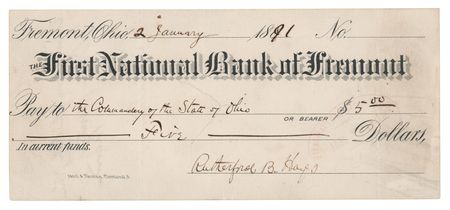 Fremont, Ohio, 2 January 1891 No.
THE First National Bank of Fremont
Pay to the Commandery of the State of Ohio OR BEARER $5.00
Five Dollars,
In current funds.
Rutherford B. Hayes